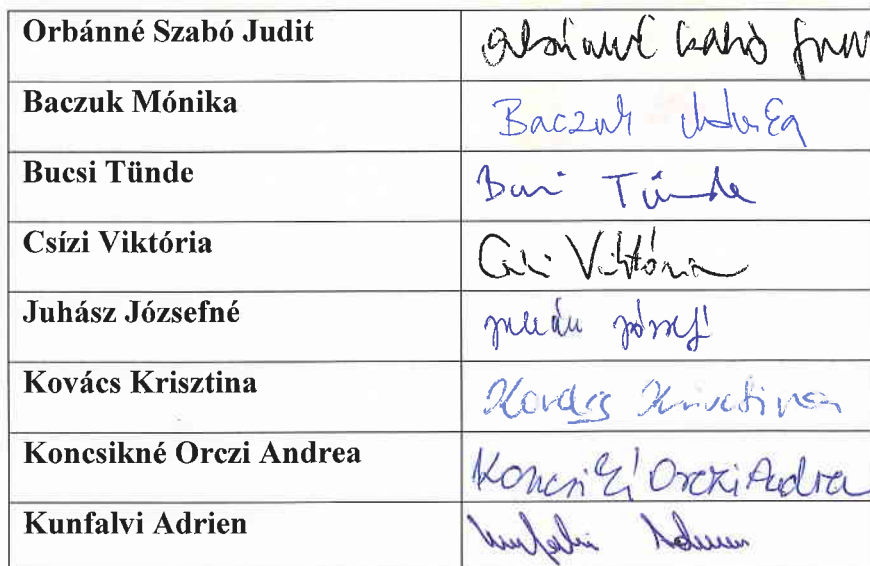 Orbánné Szabó Judit
Baczuk Mónika Baczuk Mónika
Bucsi Tünde Bucsi Tünde
Csízi Viktória Csízi Viktória
Juhász Józsefné
Kovács Krisztina Kovács Krisztina
Koncsikné Orczi Andrea Koncsikné Orczi Andrea
Kunfalvi Adrien Kunfalvi Adrien